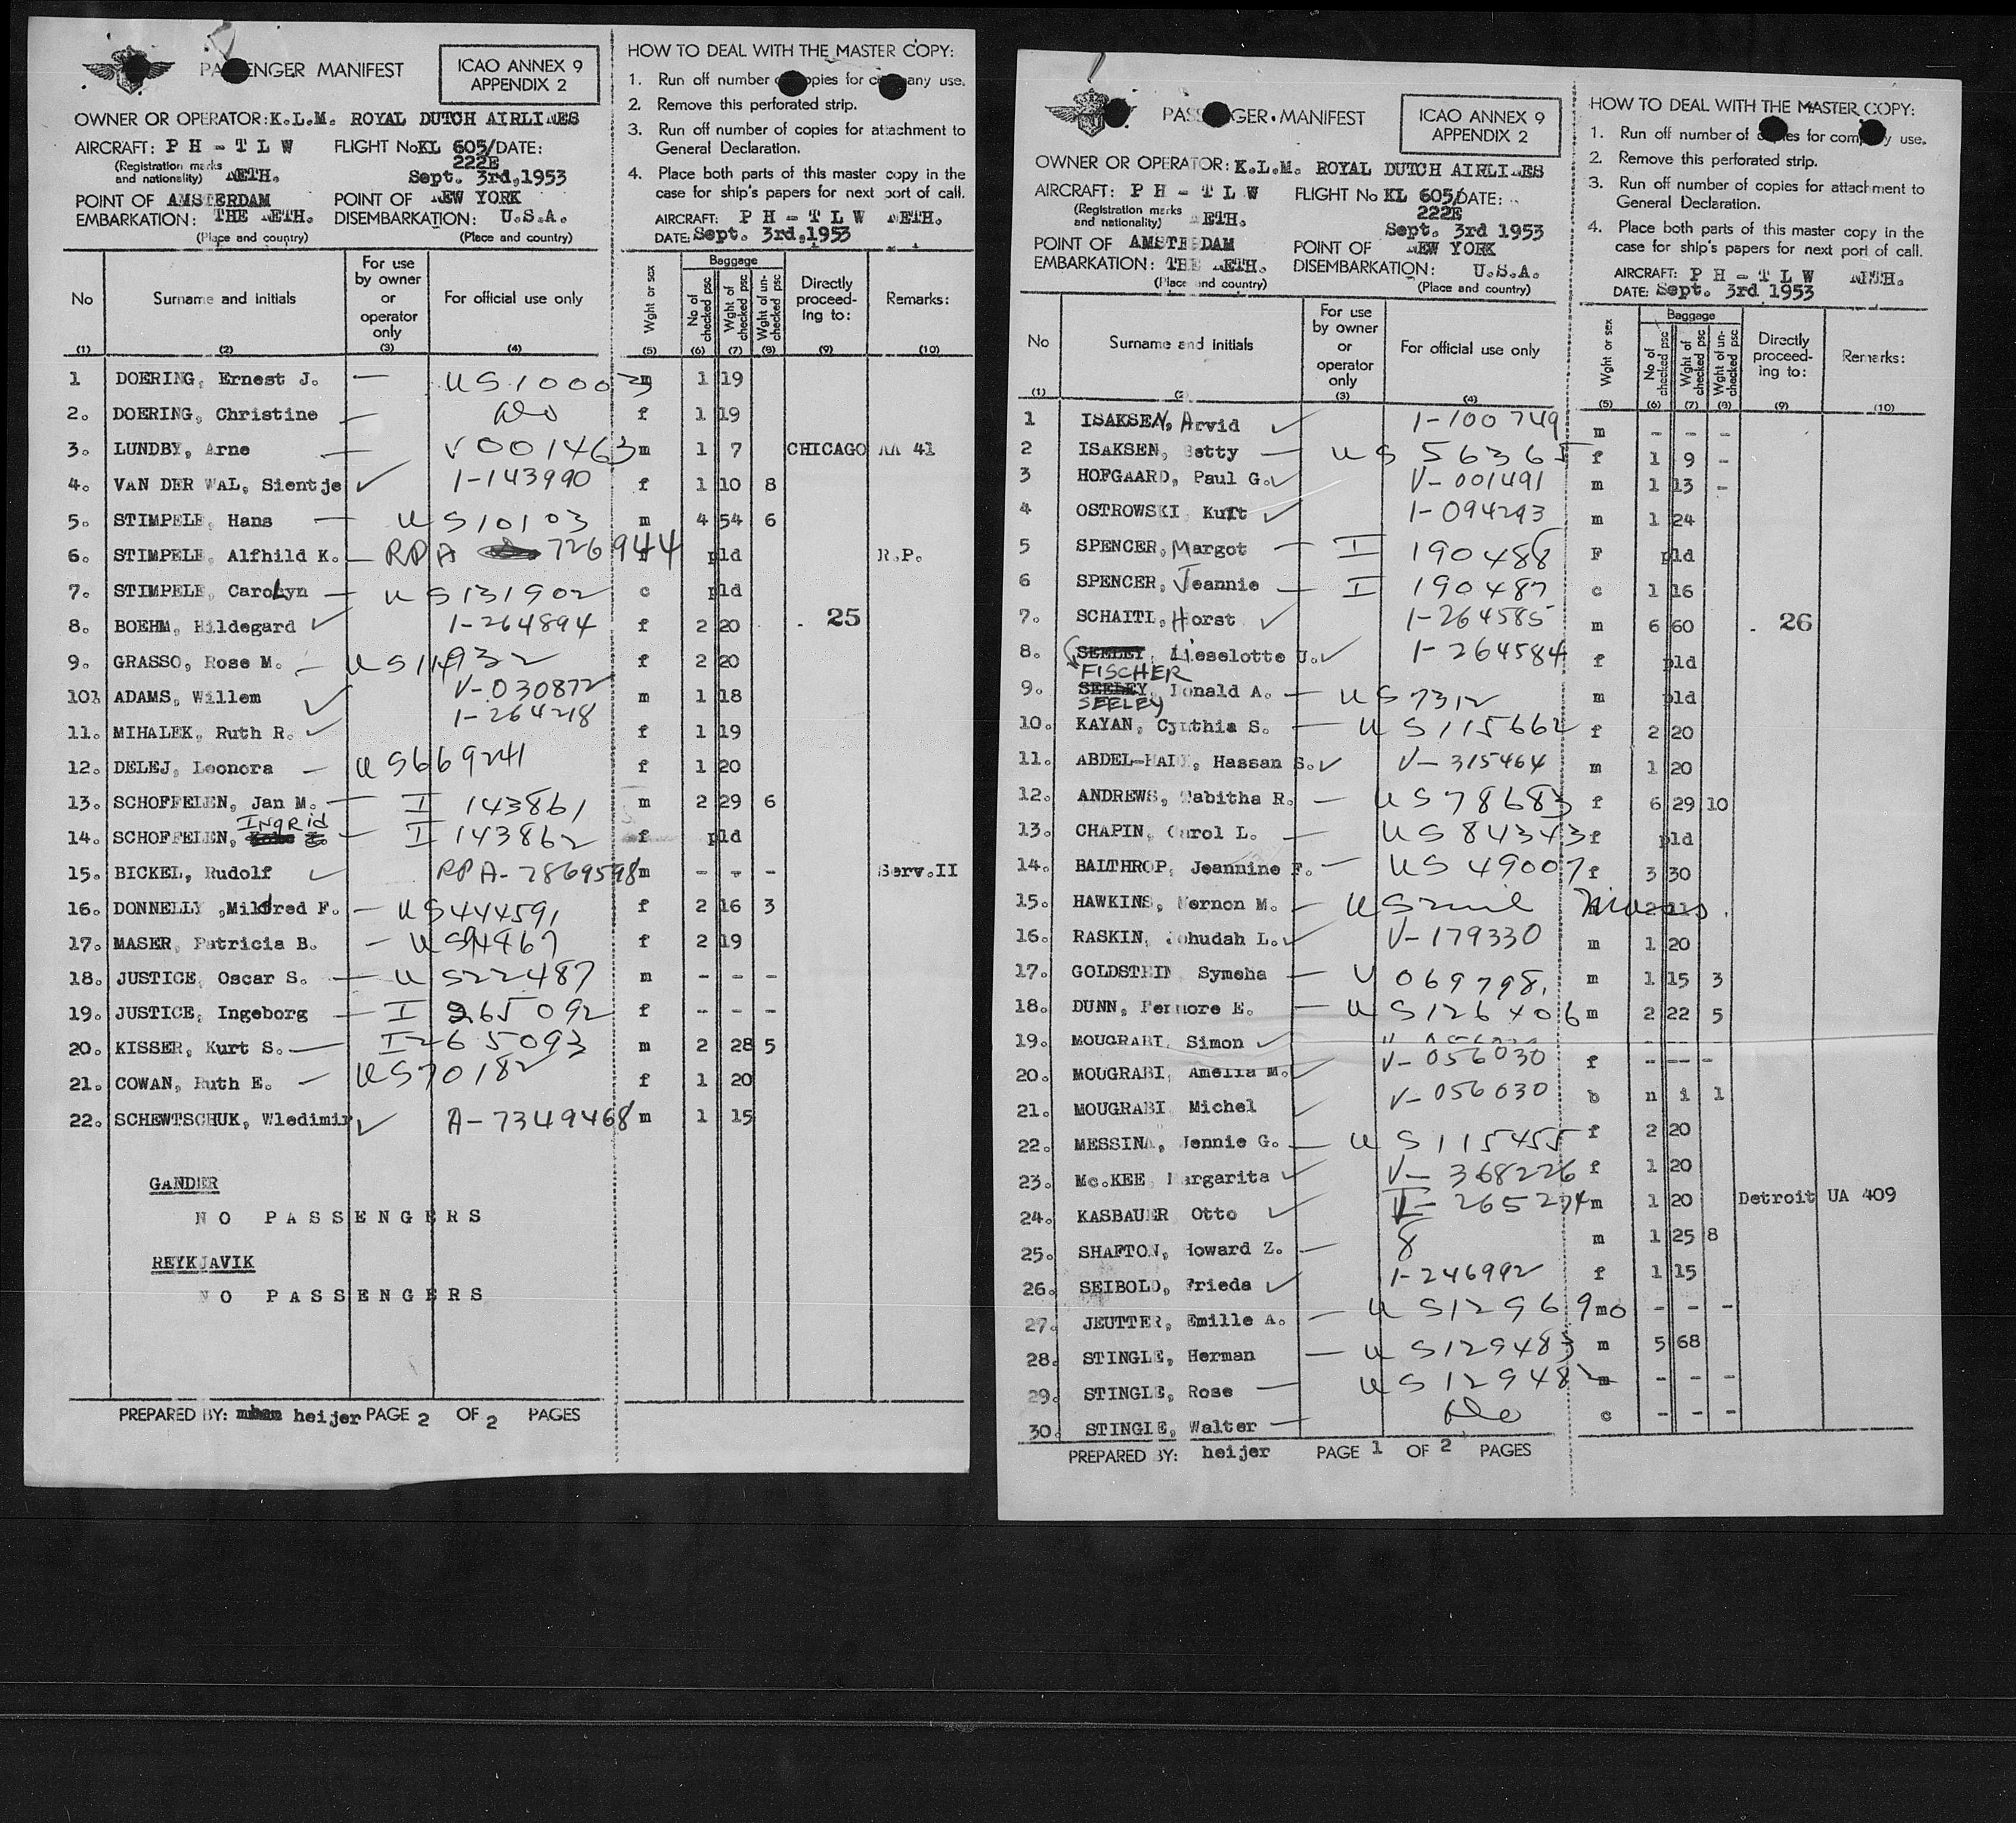 PASSENGER MANIFEST
ICAO ANNEX 9
APPENDIX 2
OWNER OR OPERATOR: K.L.M. ROYAL DUTCH AIRLINES
AIRCRAFT: P H - T L W FLIGHT No KL 605/ DATE:
222E
(Registration marks and nationality) NETH. Sept. 3rd, 1953
POINT OF AMSTERDAM POINT OF NEW YORK
EMBARKATION: THE NETH. DISEMBARKATION: U.S.A.
(Place and country) (Place and country)
HOW TO DEAL WITH THE MASTER COPY:
1. Run off number of copies for company use.
2. Remove this perforated strip.
3. Run off number of copies for attachment to
General Declaration.
4. Place both parts of this master copy in the
case for ship's papers for next port of call.
AIRCRAFT: P H - T L W NETH.
DATE: Sept. 3rd, 1953
No Surname and initials For use by owner or operator only For official use only Wght or sex Baggage No of checked psc Wght of checked psc Wght of un-checked psc Directly proceed-ing to: Remarks:
(1) (2) (3) (4) (5) (6) (7) (8) (9) (10)
1 DOERING, Ernest J. — US 10003 m 1 19
2. DOERING, Christine — do f 1 19
3. LUNDBY, Arne — V 001463 m 1 7 CHICAGO AA 41
4. VAN DER WAL, Sientje ✓ 1-143990 f 1 10 8
5. STIMPELE, Hans — US 10103 m 4 54 6
6. STIMPELE, Alfhild K. — RPA 726944 pld R.P.
7. STIMPELE, Carolyn — US 131902 c pld
8. BOEHM, Hildegard ✓ 1-264894 f 2 20 25
9. GRASSO, Rose M. — US 114932 f 2 20
10. ADAMS, Willem ✓ V-030872 m 1 18
11. MIHALEK, Ruth R. ✓ 1-264218 f 1 19
12. DELEJ, Leonora — US 669241 f 1 20
13. SCHOFFELEN, Jan M. — I 143861 m 2 29 6
14. SCHOFFELEN, INGRID — I 143862 f pld
15. BICKEL, Rudolf ✓ RPA-7869598 m - - - Serv.II
16. DONNELLY, Mildred F. — US 444591 f 2 16 3
17. MASER, Patricia B. — US f 2 19
18. JUSTICE, Oscar S. — US 22487 m - - -
19. JUSTICE, Ingeborg — I 265092 f - - -
20. KISSER, Kurt S. — I 265093 m 2 28 5
21. COWAN, Ruth E. — US 70182 f 1 20
22. SCHEWTSCHUK, Wledimir ✓ A-7349468 m 1 15
GANDER
NO PASSENGERS
REYKJAVIK
NO PASSENGERS
PREPARED BY: heijer PAGE 2 OF 2 PAGES
PASSENGER MANIFEST
ICAO ANNEX 9
APPENDIX 2
OWNER OR OPERATOR: K.L.M. ROYAL DUTCH AIRLINES
AIRCRAFT: P H - T L W FLIGHT No KL 605/ DATE:
222E
(Registration marks and nationality) NETH. Sept. 3rd 1953
POINT OF AMSTERDAM POINT OF NEW YORK
EMBARKATION: THE NETH. DISEMBARKATION: U.S.A.
(Place and country) (Place and country)
HOW TO DEAL WITH THE MASTER COPY:
1. Run off number of copies for company use.
2. Remove this perforated strip.
3. Run off number of copies for attachment to
General Declaration.
4. Place both parts of this master copy in the
case for ship's papers for next port of call.
AIRCRAFT: P H - T L W NETH.
DATE: Sept. 3rd 1953
No Surname and initials For use by owner or operator only For official use only Wght or sex Baggage No of checked psc Wght of checked psc Wght of un-checked psc Directly proceed-ing to: Remarks:
(1) (2) (3) (4) (5) (6) (7) (8) (9) (10)
1 ISAKSEN, Arvid ✓ 1-100749 m - - -
2 ISAKSEN, Betty — US 56365 f 1 9 -
3 HOFGAARD, Paul G. ✓ V-001491 m 1 13 -
4 OSTROWSKI Kurt ✓ 1-094293 m 1 24
5 SPENCER, Margot — I 190488 F pld
6 SPENCER, Jeannie — I 190487 c 1 16
7. SCHAITL, Horst ✓ 1-264585 m 6 60 26
8. SEELEY, Lieselotte U. ✓ 1-264584 f pld
FISCHER
9. SEELEY, Donald A. — US 7312 m pld
SEELEY
10. KAYAN, Cynthia S. — US 115662 f 2 20
11. ABDEL-HADI, Hassan S. ✓ V-315464 m 1 20
12. ANDREWS, Tabitha R. — US 78683 f 6 29 10
13. CHAPIN, Carol L. — US 84343 f pld
14. BALTHROP, Jeannine F. — US 49007 f 3 30
15. HAWKINS, Vernon M. — US mil 2 11
16. RASKIN, Johudah L. ✓ V-179330 m 1 20
17. GOLDSTEIN Symsha — V 069798 m 1 15 3
18. DUNN, Penmore E. — US 126406 m 2 22 5
19. MOUGRABI, Simon ✓ - - -
20. MOUGRABI, Amelia M. ✓ V-056030 f - - - -
21. MOUGRABI Michel ✓ V-056030 b n i 1
22. MESSINA, Jennie G. — US 115455 f 2 20
23. Mc.KEE Margarita ✓ V-368226 f 1 20
24. KASBAUER Otto ✓ I-265274 m 1 20 Detroit UA 409
25. SHAFTON, Howard Z. — 8 m 1 25 8
26. SEIBOLD, Frieda ✓ 1-246992 f 1 15
27. JEUTTER, Emille A. — US 129690 m - - -
28. STINGLE, Herman — US 129483 m 5 68
29. STINGLE, Rose — US 129482 m - - -
30. STINGLE, Walter — do c - - -
PREPARED BY: heijer PAGE 1 OF 2 PAGES